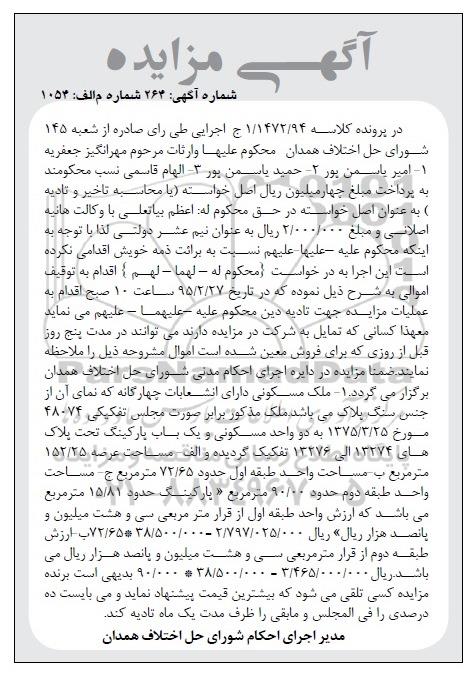 آگهـــی مزایده
شماره آگهی: ۲۶۴ شماره م‌الف: ۱۰۵۴
در پرونده کلاسه ۱/۱۴۷۲/۹۴ ج اجرایی طی رای صادره از شعبه ۱۴۵
شورای حل اختلاف همدان محکوم علیها وارثات مرحوم مهرانگیز جعفریه
۱- امیر یاسمن پور ۲- حمید یاسمن پور ۳- الهام قاسمی نسب محکومند
به پرداخت مبلغ چهارمیلیون ریال اصل خواسته (با محاسبه تاخیر و تادیه
) به عنوان اصل خواسته در حق محکوم له: اعظم بیاتعلی با وکالت هانیه
اصلانی و مبلغ ۲/۰۰۰/۰۰۰ ریال به عنوان نیم عشر دولتی لذا با توجه به
اینکه محکوم علیه -علیها-علیهم نسبت به برائت ذمه خویش اقدامی نکرده
است این اجرا به در خواست {محکوم له – لهما – لهم } اقدام به توقیف
اموالی به شرح ذیل نموده که در تاریخ ۹۵/۲/۲۷ ساعت ۱۰ صبح اقدام به
عملیات مزایده جهت تادیه دین محکوم علیه –علیهما – علیهم می نماید
معهذا کسانی که تمایل به شرکت در مزایده دارند می توانند در مدت پنج روز
قبل از روزی که برای فروش معین شده است اموال مشروحه ذیل را ملاحظه
نمایند.ضمنا مزایده در دایره اجرای احکام مدنی شورای حل اختلاف همدان
برگزار می گردد.۱- ملک مسکونی دارای انشعابات چهارگانه که نمای آن از
جنس سنگ پلاک می باشد.ملک مذکور برابر صورت مجلس تفکیکی ۴۸۰۷۴
مورخ ۱۳۷۵/۳/۲۵ به دو واحد مسکونی و یک باب پارکینگ تحت پلاک
های ۱۳۲۷۴ الی ۱۳۲۷۶ تفکیک گردیده و الف- مساحت عرصه ۱۵۲/۲۵
مترمربع ب-مساحت واحد طبقه اول حدود ۷۲/۶۵ مترمربع ج- مساحت
واحد طبقه دوم حدود ۹۰/۰۰ مترمربع « پارکینگ حدود ۱۵/۸۱ مترمربع
می باشد که ارزش واحد طبقه اول از قرار متر مربعی سی و هشت میلیون و
پانصد هزار ریال» ریال ۲/۷۹۷/۰۲۵/۰۰۰ –۳۸/۵۰۰/۰۰۰ *۷۲/۶۵ب-ارزش
طبقه دوم از قرار مترمربعی سی و هشت میلیون و پانصد هزار ریال می
باشد.ریال۳/۴۶۵/۰۰۰/۰۰۰ – ۳۸/۵۰۰/۰۰۰ * ۹۰/۰۰۰ بدیهی است برنده
مزایده کسی تلقی می شود که بیشترین قیمت پیشنهاد نماید و می بایست ده
درصدی را فی المجلس و مابقی را ظرف مدت یک ماه تادیه کند.
مدیر اجرای احکام شورای حل اختلاف همدان